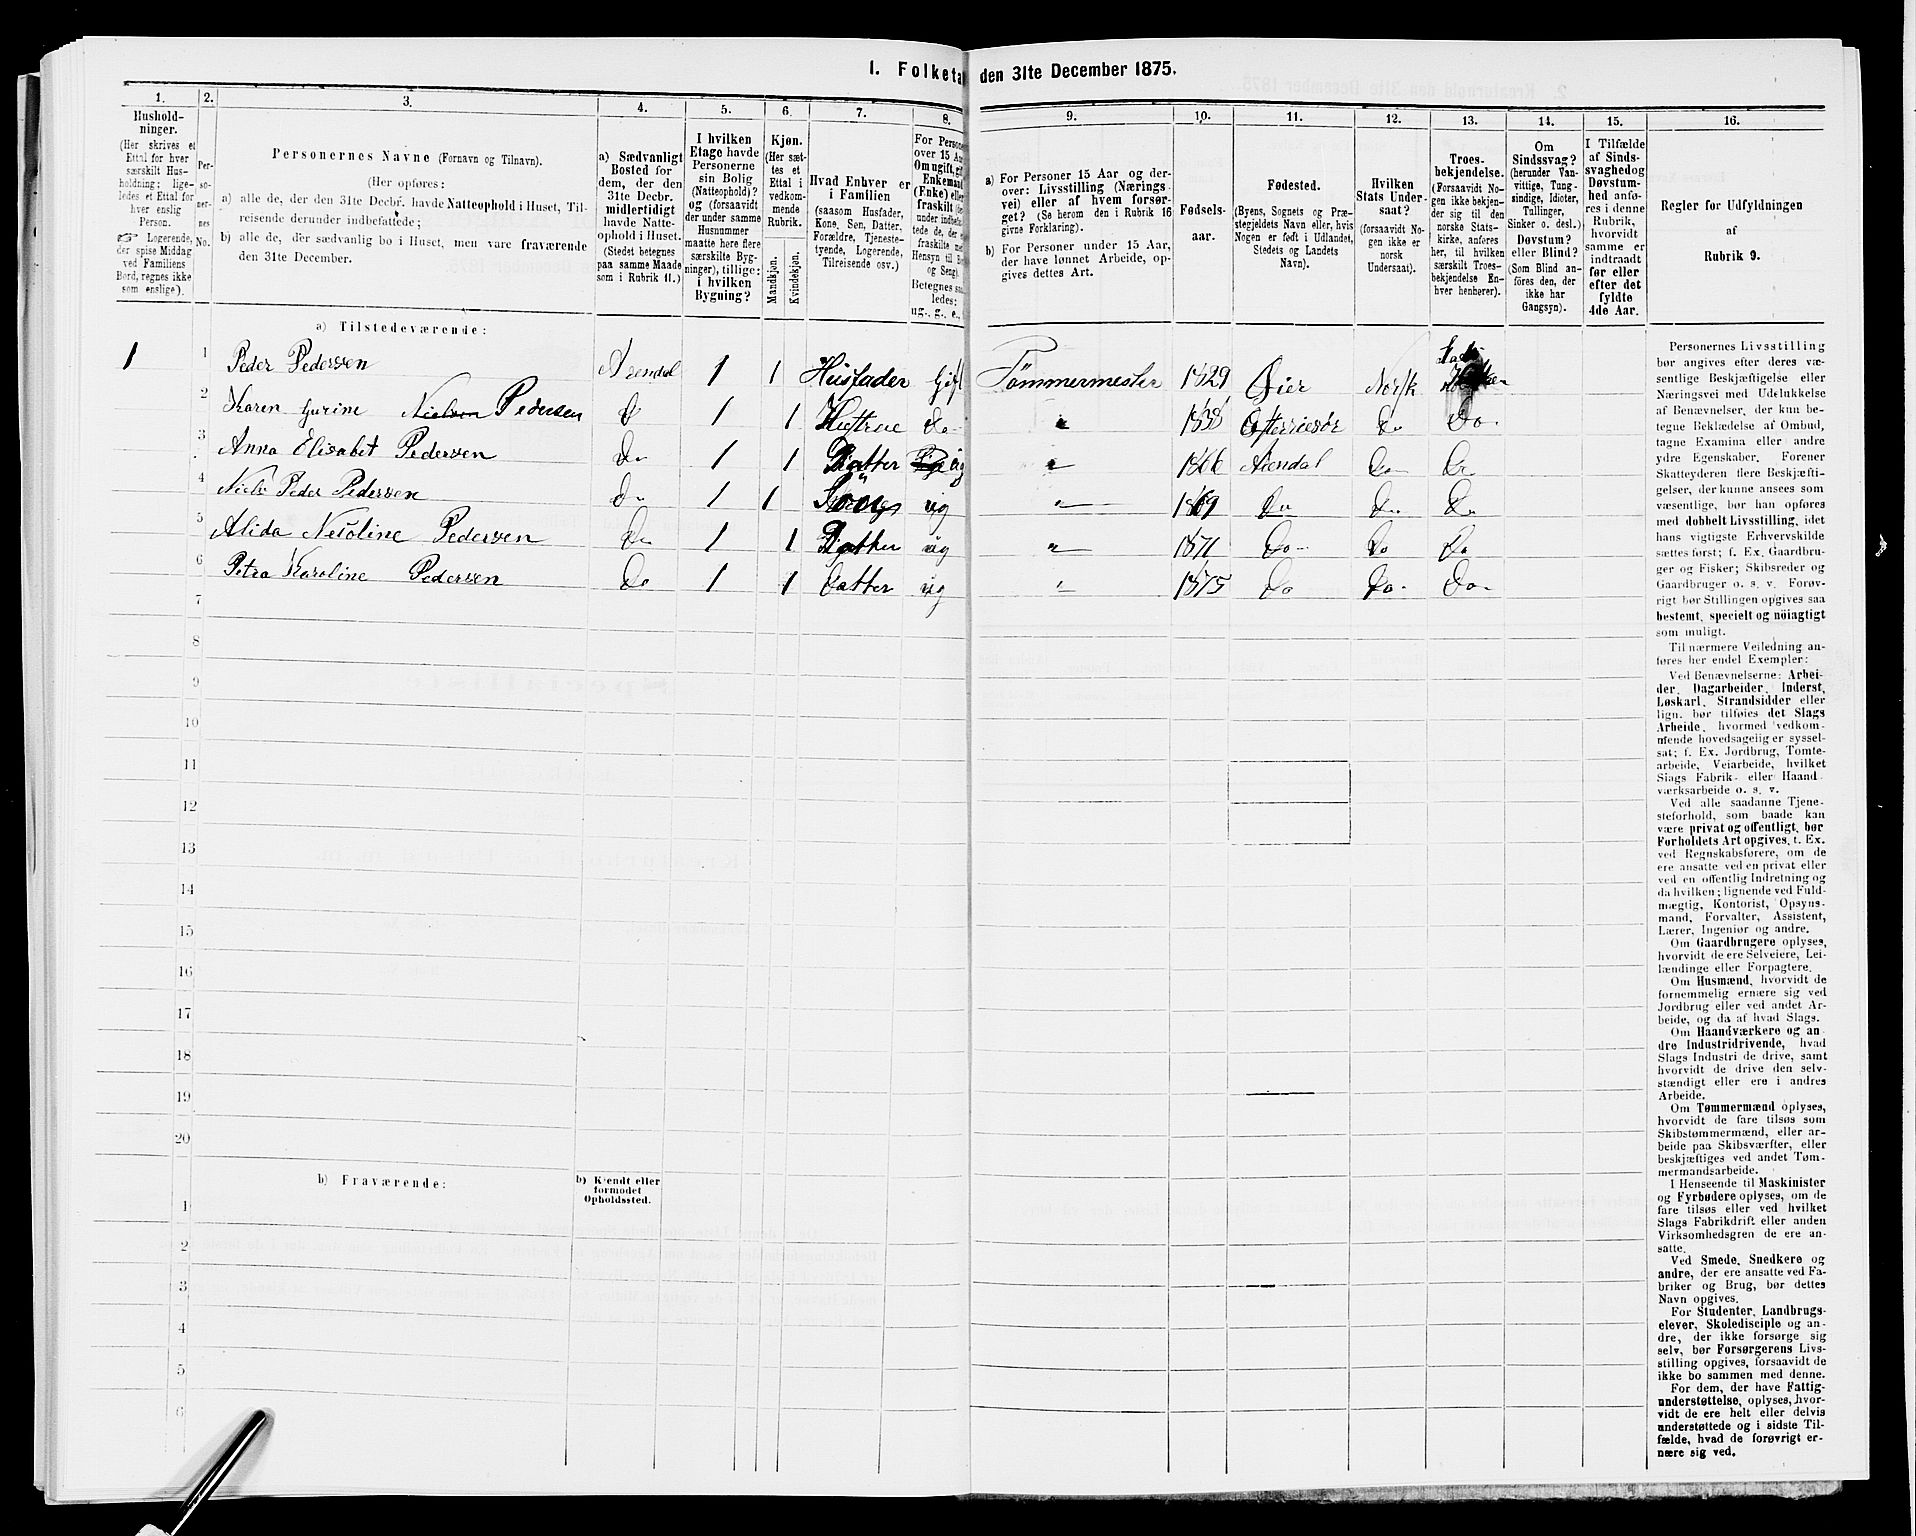 1. Folketæ den 31te December 1875.
1. 2. 3. 4. 5. 6. 7. 8. 9. 10. 11. 12. 13. 14. 15. 16.
Husholdninger.
(Her skrives et
Ettal for hver
særskilt Husholdning;
ligeledes et Ettal for
hver enslig
Person.
☞ Logerende,
der spise Middag
ved Familiens
Bord, regnes ikke
som enslige).
Personernes
No.
Personernes Navne (Fornavn og Tilnavn).
(Her opføres:
a) alle de, der den 31te Decbr. havde Natteophold i Huset, Tilreisende derunder indbefattede;
b) alle de, der sædvanlig bo i Huset, men vare fraværende
den 31te December.
a) Sædvanligt
Bosted for
dem, der den
31te Decbr.
midlertidigt
havde Natteophold i Huset.
(Stedet betegnes
paa samme Maade
som i Rubrik 11.)
I hvilken
Etage havde
Personerne
sin Bolig
(Natteophold)?
og (forsaavidt
der under samme
Husnummer
maatte høre flere
særskilte Bygninger), tillige:
i hvilken
Bygning?
Kjøn.
(Her sættes et
Ettal i
vedkommende
Rubrik.
Mandkjøn.
Kvindekjøn.
Hvad Enhver er
i Familien
(saasom Husfader,
Kone, Søn, Datter,
Forældre, Tjenestetyende, Logerende,
Tilreisende osv.)
For Person
over 15 Aa
Om ugift, gif
Enkemand
(Enke) elle
fraskilt
Betegnes saa
ledes:
ug., g., e.,
a) For Personer 15 Aar og derover: Livsstilling (Næringsvei) eller af hvem forsørget? (Se herom den i Rubrik 16
givne Forklaring).
b) For Personer under 15 Aar,
der have lønnet Arbeide, opgives dettes Art.
Fødselsaar.
Fødested.
(Byens, Sognets og Præstegjeldets Navn eller, hvis
Nogen er født i Udlandet,
Stedets og Landets
Navn).
Hvilken
Stats Undersaat?
(forsaavidt Nogen ikke er
norsk
Undersaat).
Troesbekjendelse.
(Forsaavidt Nogen ikke bekjender sig til den
norske Statskirke, anføres
her, til hvilken
særskilt Troesbekjendelse Enhver henhører).
Om
Sindssvag?
(herunder Vanvittige, Tungsindige, Idioter,
Tullinger,
Sinker o. desl.)
Døvstum?
eller Blind?
(Som Blind anføres den, der
ikke har
Gangsyn).
I Tilfælde
af Sindssvaghed og
Døvstumhed anføres i denne
Rubrik,
hvorvidt
samme er
indtraadt
før eller
efter det
fyldte
4de Aar.
Regler for Udfyldningen
af
Rubrik 9.
a) Tilstedeværende:
1 1 Peder Pedersen Arendal 1 1 Husfader Gift Tømmermester 1829 Øier Norsk
2 Karen Gurine Nielsen Pedersen Do 1 1 Hustrue Do " 1838 Østerrisør Do Do
3 Anna Elisabet Pedersen Do 1 1 Datter ug " 1866 Arendal Do Do
4 Niels Peder Pedersen Do 1 1 Søn ug " 1869 Do Do Do
5 Alida Nicoline Pedersen Do 1 1 Datter ug " 1871 Do Do Do
6 Petra Karoline Pedersen Do 1 1 Datter ug " 1875 Do Do Do
7
8
9
10
11
12
13
14
15
16
17
18
19
20
b) Fraværende:
b) Kjendt eller
formodet
Opholdssted.
1
2
3
4
5
6
Personernes Livsstilling
bør angives efter deres væsentlige Beskjæftigelse eller
Næringsvei med Udelukkelse
af Benævnelser, der kun betegne Beklædelse af Ombud,
tagne Examina eller andre
ydre Egenskaber. Forener
Skatteyderen flere Beskjæftigelser, der kunne ansees som
væsentlige, bør han opføres
med dobbelt Livsstilling, idet
hans vigtigste Erhvervskilde
sættes først; f. Ex. Gaardbruger og Fisker; Skibsreder og
Gaardbruger o. s. v. Forøvrigt bør Stillingen opgives saa
bestemt, specielt og nöiagtigt
som muligt.
Til nærmere Veiledning anføres her endel Exempler:
Ved Benævnelserne: Arbeider, Dagarbeider, Inderst,
Løskarl, Strandsidder eller
lign. bør tilføies det Slags
Arbeide, hvormed vedkommende hovedsagelig er sysselsat; f. Ex. Jordbrug, Tomtearbeide, Veiarbeide, hvilket
Slags Fabrik- eller Haandværksarbeide o. s. v.
Ved alle saadanne Tjenesteforhold, som baade kan
være privat og offentligt, bør
Forholdets Art opgives, f. Ex.
ved Regnskabsførere, om de
ere ansatte ved en privat eller
ved en offentlig Indretning og
da hvilken; lignende ved Fuldmægtig, Kontorist, Opsynsmand, Forvalter, Assistent,
Lærer, Ingeniør og andre.
Om Gaardbrugere oplyses,
hvorvidt de ere Selveiere, Leilændinge eller Forpagtere.
Om Husmænd, hvorvidt de
fornemmelig ernære sig ved
Jordbrug eller ved andet Arbeide, og da af hvad Slags.
Om Haandværkere og andre Industridrivende, hvad
Slags Industri de drive, samt
hvorvidt de drive den selvstændigt eller ere i andres
Arbeide.
Om Tømmermænd oplyses,
hvorvidt de fare tilsøs som
Skibstømmermænd, eller arbeide paa Skibsværfter, eller
beskjæftiges ved andet Tømmermandsarbeide.
I Henseende til Maskinister
og Fyrbødere oplyses, om de
fare tilsøs eller ved hvilket
Slags Fabrikdrift eller anden
Virksomhedsgren de ere ansatte.
Ved Smede, Snedkere og
andre, der ere ansatte ved Fabriker og Brug, bør dettes
Navn opgives.
For Studenter, Landbrugselever, Skoledisciple og andre, der ikke forsørge sig
selv, bør Forsørgerens Livsstilling opgives, forsaavidt de
ikke bo sammen med denne.
For dem, der have Fattigunderstøttelse, oplyses, hvorvidt de ere helt eller delvis
understøttede og i sidste Tilfælde, hvad de forøvrigt ernære sig ved.